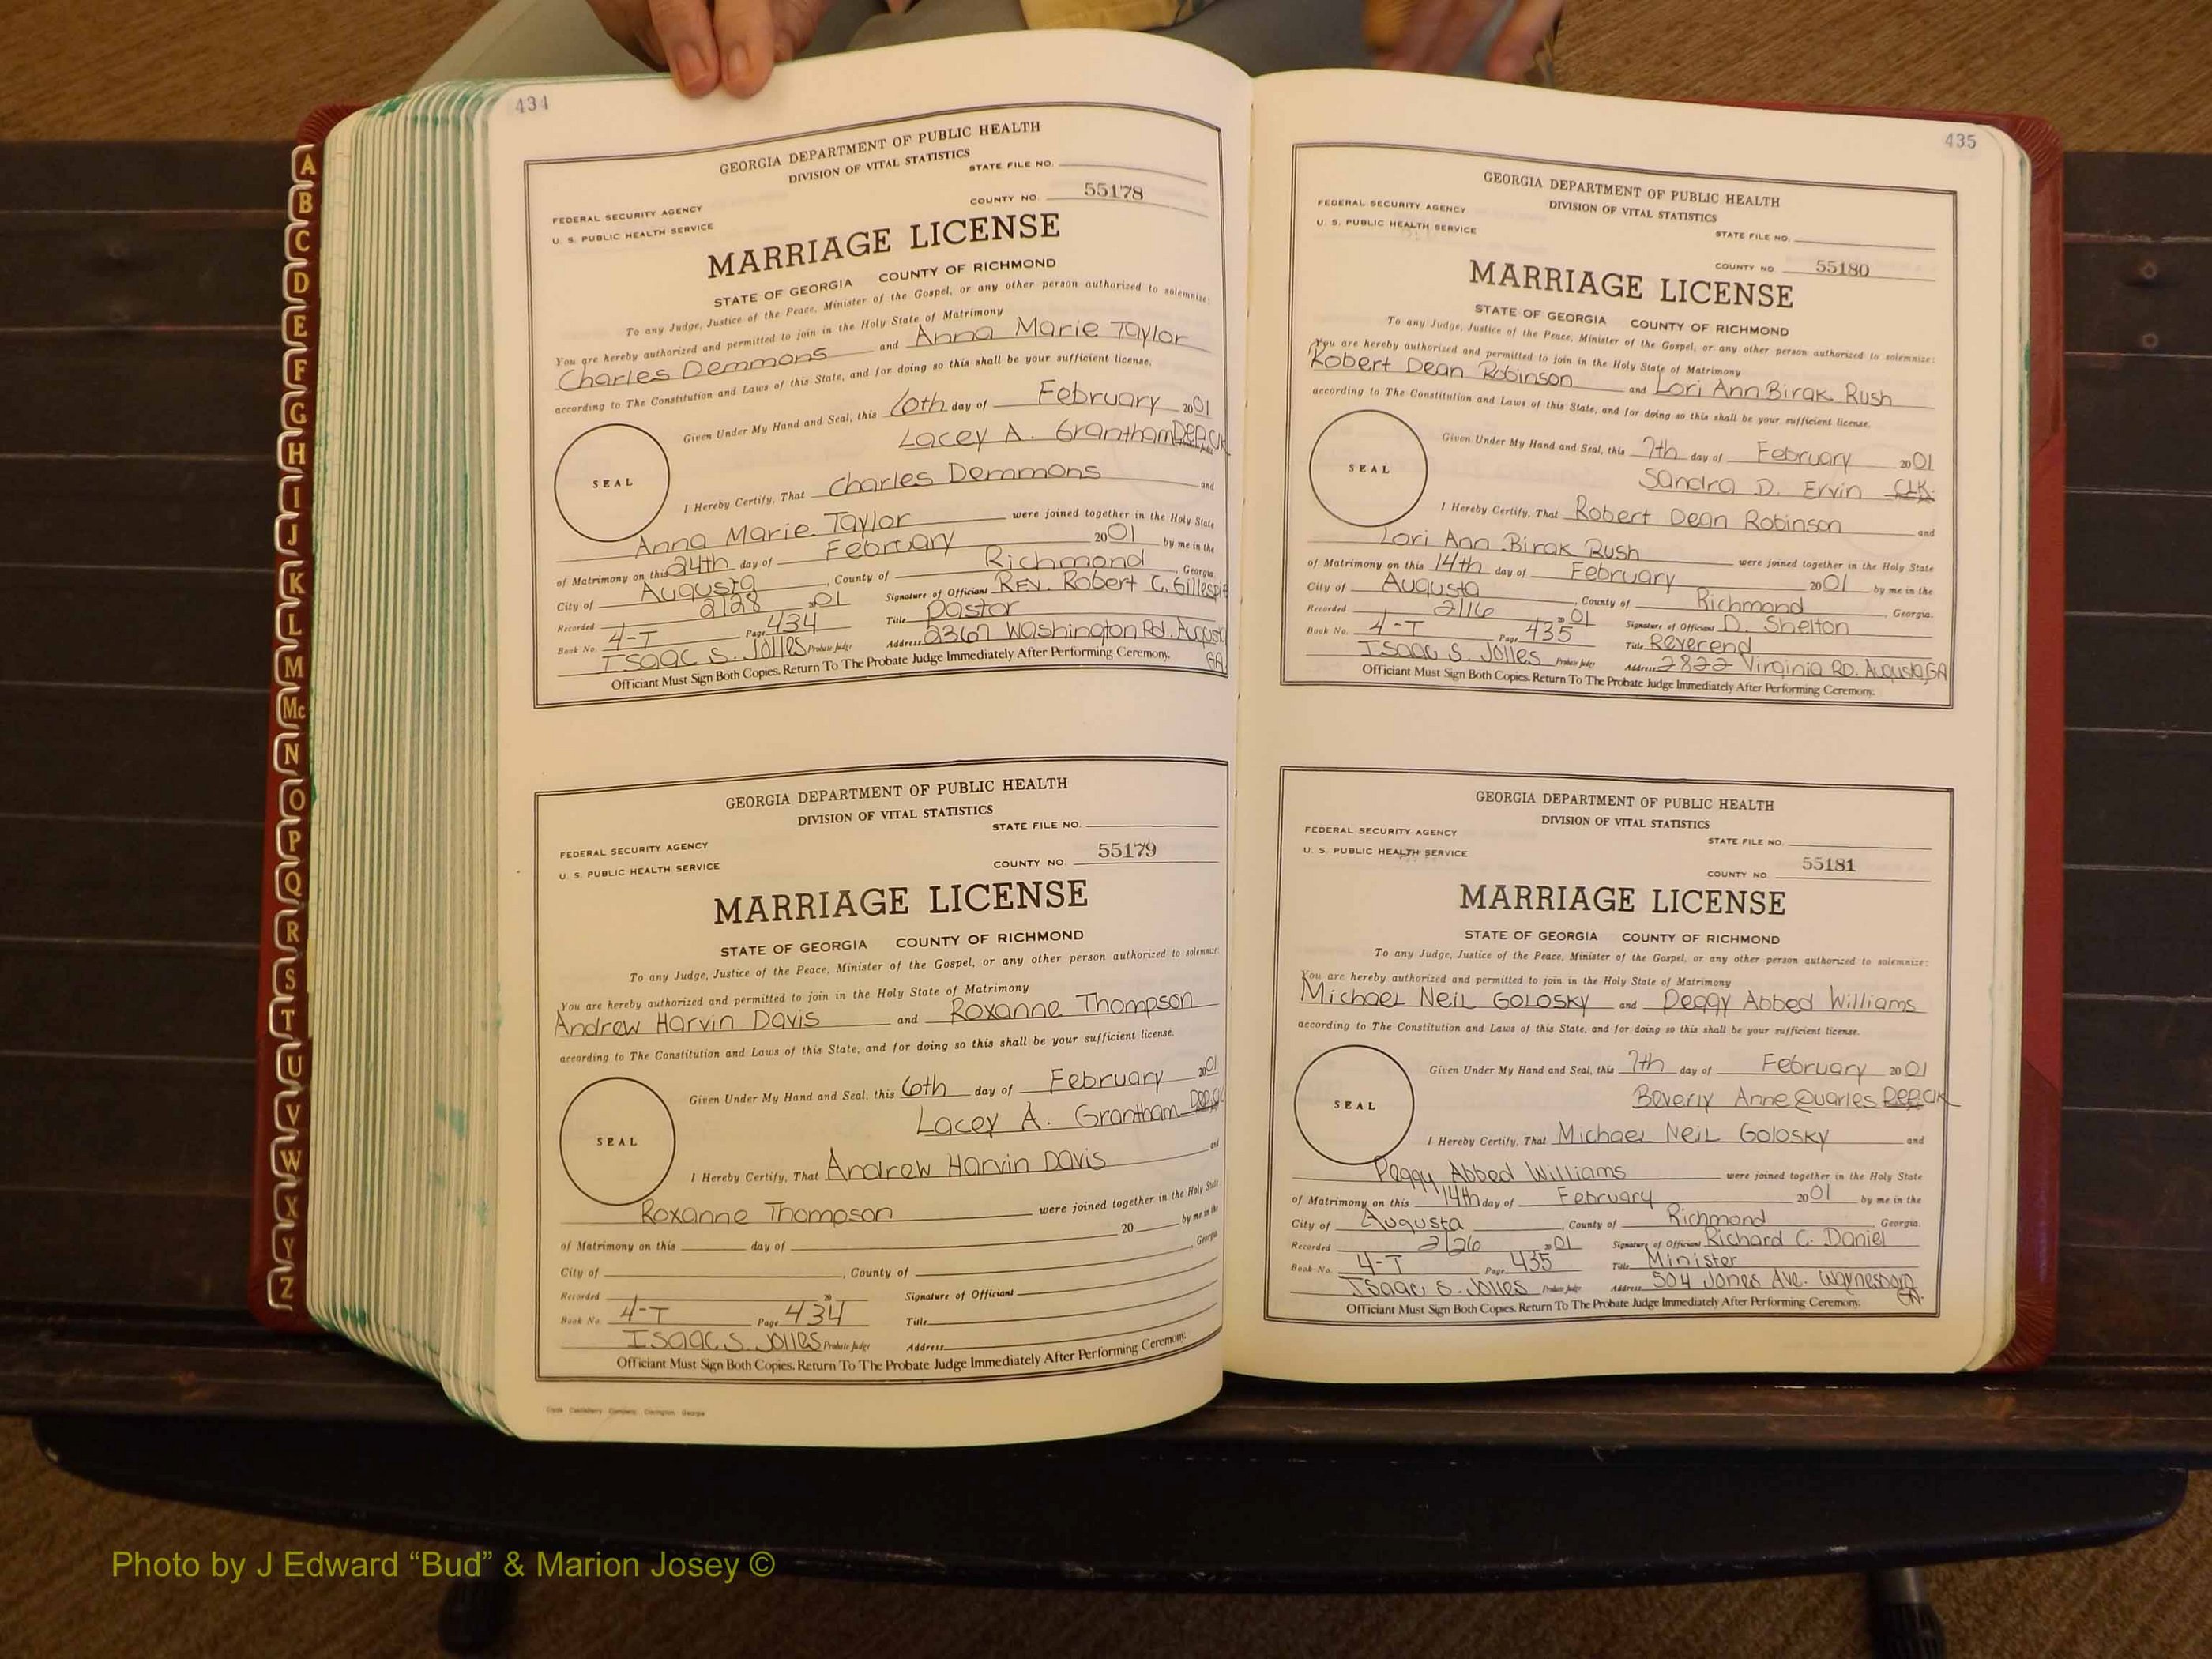 A
B
C
D
E
F
G
H
I
J
K
L
M
Mc
N
O
P
Q
R
S
T
U
V
W
X
Y
Z
434
GEORGIA DEPARTMENT OF PUBLIC HEALTH
DIVISION OF VITAL STATISTICS
STATE FILE NO.
FEDERAL SECURITY AGENCY
U. S. PUBLIC HEALTH SERVICE
COUNTY NO. 55178
MARRIAGE LICENSE
STATE OF GEORGIA COUNTY OF RICHMOND
To any Judge, Justice of the Peace, Minister of the Gospel, or any other person authorized to solemnize:
You are hereby authorized and permitted to join in the Holy State of Matrimony
Charles Demmons and Anna Marie Taylor
according to The Constitution and Laws of this State, and for doing so this shall be your sufficient license.
Given Under My Hand and Seal, this 6th day of February 2001
Lacey A. Grantham DEP.CLK
SEAL
I Hereby Certify, That Charles Demmons and
Anna Marie Taylor were joined together in the Holy State
of Matrimony on this 24th day of February 2001 by me in the
City of Augusta, County of Richmond, Georgia.
Recorded 2/28 2001 Signature of Officiant Rev. Robert C. Gillespie
Book No. 4-T Page 434 Title Pastor
Isaac S. Jolles Probate Judge Address 2367 Washington Rd. Augusta GA.
Officiant Must Sign Both Copies. Return To The Probate Judge Immediately After Performing Ceremony.
GEORGIA DEPARTMENT OF PUBLIC HEALTH
DIVISION OF VITAL STATISTICS
STATE FILE NO.
FEDERAL SECURITY AGENCY
U. S. PUBLIC HEALTH SERVICE
COUNTY NO. 55179
MARRIAGE LICENSE
STATE OF GEORGIA COUNTY OF RICHMOND
To any Judge, Justice of the Peace, Minister of the Gospel, or any other person authorized to solemnize:
You are hereby authorized and permitted to join in the Holy State of Matrimony
Andrew Harvin Davis and Roxanne Thompson
according to The Constitution and Laws of this State, and for doing so this shall be your sufficient license.
Given Under My Hand and Seal, this 6th day of February 2001
Lacey A. Grantham DEP.CLK
SEAL
I Hereby Certify, That Andrew Harvin Davis and
Roxanne Thompson were joined together in the Holy State
of Matrimony on this day of 20 by me in the
City of , County of , Georgia
Recorded 20 Signature of Officiant
Book No. 4-T Page 434 Title
Isaac S. Jolles Probate Judge Address
Officiant Must Sign Both Copies. Return To The Probate Judge Immediately After Performing Ceremony.
435
GEORGIA DEPARTMENT OF PUBLIC HEALTH
DIVISION OF VITAL STATISTICS
FEDERAL SECURITY AGENCY
U. S. PUBLIC HEALTH SERVICE
STATE FILE NO.
COUNTY NO 55180
MARRIAGE LICENSE
STATE OF GEORGIA COUNTY OF RICHMOND
To any Judge, Justice of the Peace, Minister of the Gospel, or any other person authorized to solemnize:
You are hereby authorized and permitted to join in the Holy State of Matrimony
Robert Dean Robinson and Lori Ann Birak Rush
according to The Constitution and Laws of this State, and for doing so this shall be your sufficient license.
Given Under My Hand and Seal, this 7th day of February 2001
Sandra D. Ervin CLK.
SEAL
I Hereby Certify, That Robert Dean Robinson and
Lori Ann Birak Rush were joined together in the Holy State
of Matrimony on this 14th day of February 2001 by me in the
City of Augusta, County of Richmond Georgia.
Recorded 2/16 2001 Signature of Officiant D. Shelton
Book No. 4-T Page 435 Title Reverend
Isaac S. Jolles Probate Judge Address 2822 Virginia RD. Augusta, GA
Officiant Must Sign Both Copies. Return To The Probate Judge Immediately After Performing Ceremony.
GEORGIA DEPARTMENT OF PUBLIC HEALTH
DIVISION OF VITAL STATISTICS
FEDERAL SECURITY AGENCY
U. S. PUBLIC HEALTH SERVICE
STATE FILE NO.
COUNTY NO 55181
MARRIAGE LICENSE
STATE OF GEORGIA COUNTY OF RICHMOND
To any Judge, Justice of the Peace, Minister of the Gospel, or any other person authorized to solemnize:
You are hereby authorized and permitted to join in the Holy State of Matrimony
Michael Neil Golosky and Peggy Abbed Williams
according to The Constitution and Laws of this State, and for doing so this shall be your sufficient license.
Given Under My Hand and Seal, this 7th day of February 2001
Beverly Anne Quarles DEP.CLK
SEAL
I Hereby Certify, That Michael Neil Golosky and
Peggy Abbed Williams were joined together in the Holy State
of Matrimony on this 14th day of February 2001 by me in the
City of Augusta, County of Richmond Georgia.
Recorded 2/26 2001 Signature of Officiant Richard C. Daniel
Book No. 4-T Page 435 Title Minister
Isaac S. Jolles Probate Judge Address 504 Jones Ave. Waynesboro GA.
Officiant Must Sign Both Copies. Return To The Probate Judge Immediately After Performing Ceremony.
Photo by J Edward “Bud” & Marion Josey ©